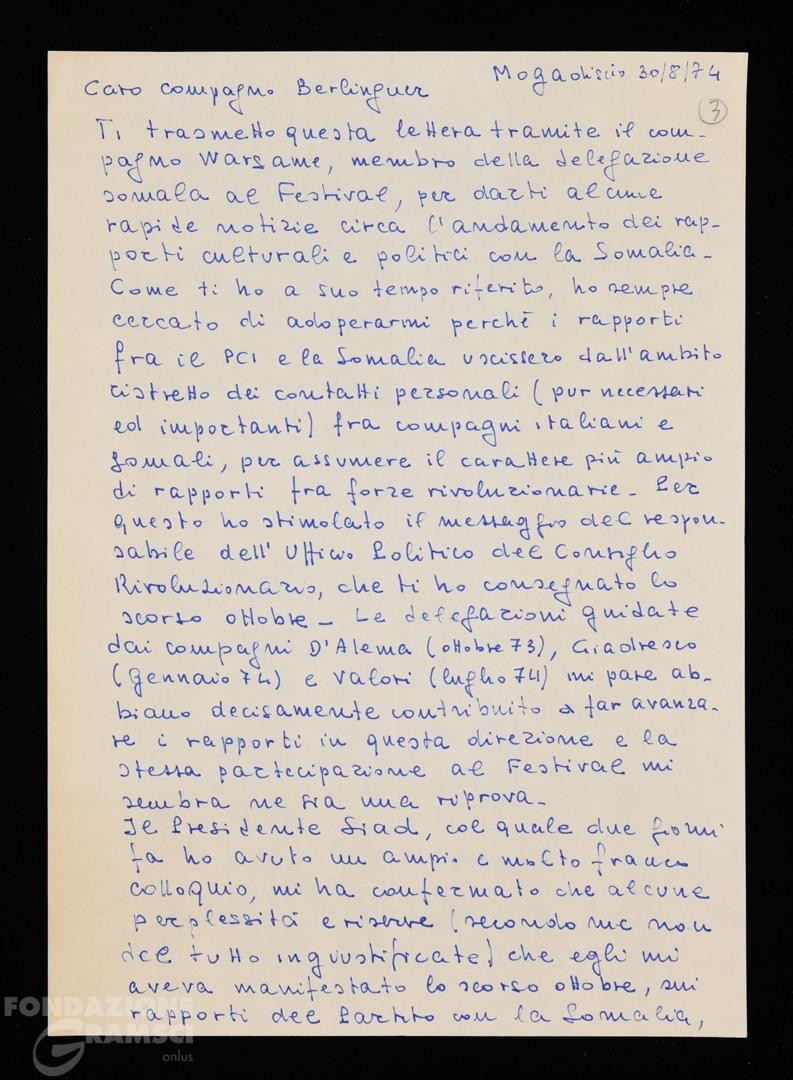 Mogadiscio 30/8/74
3
Caro compagno Berlinguer
Ti trasmetto questa lettera tramite il com-
pagno Warsame, membro della delegazione
somala al Festival, per darti alcune
rapide notizie circa l'andamento dei rap-
porti culturali e politici con la Somalia-
Come ti ho a suo tempo riferito, ho sempre
cercato di adoperarmi perchè i rapporti
fra il PCI e la Somalia uscissero dall'ambito
ristretto dei contatti personali (pur necessari
ed importanti) fra compagni italiani e
Somali, per assumere il carattere più ampio
di rapporti fra forze rivoluzionarie- Per
questo ho stimolato il messaggio del respon-
sabile dell'Ufficio Politico del Consiglio
Rivoluzionario, che ti ho consegnato lo
scorso ottobre- Le delegazioni guidate
dai compagni D'Alema (ottobre 73), Giadresco
(gennaio 74) e Valori (luglio 74) mi pare ab-
biano decisamente contribuito a far avanza-
re i rapporti in questa direzione e la
stessa partecipazione al Festival mi
sembra ne sia una riprova-
Il Presidente Siad, col quale due giorni
fa ho avuto un ampio e molto franco
colloquio, mi ha confermato che alcune
perplessità e riserve (secondo me non
del tutto ingiustificate) che egli mi
aveva manifestato lo scorso ottobre, sui
rapporti del Partito con la Somalia,
FONDAZIONE
GRAMSCI
onlus